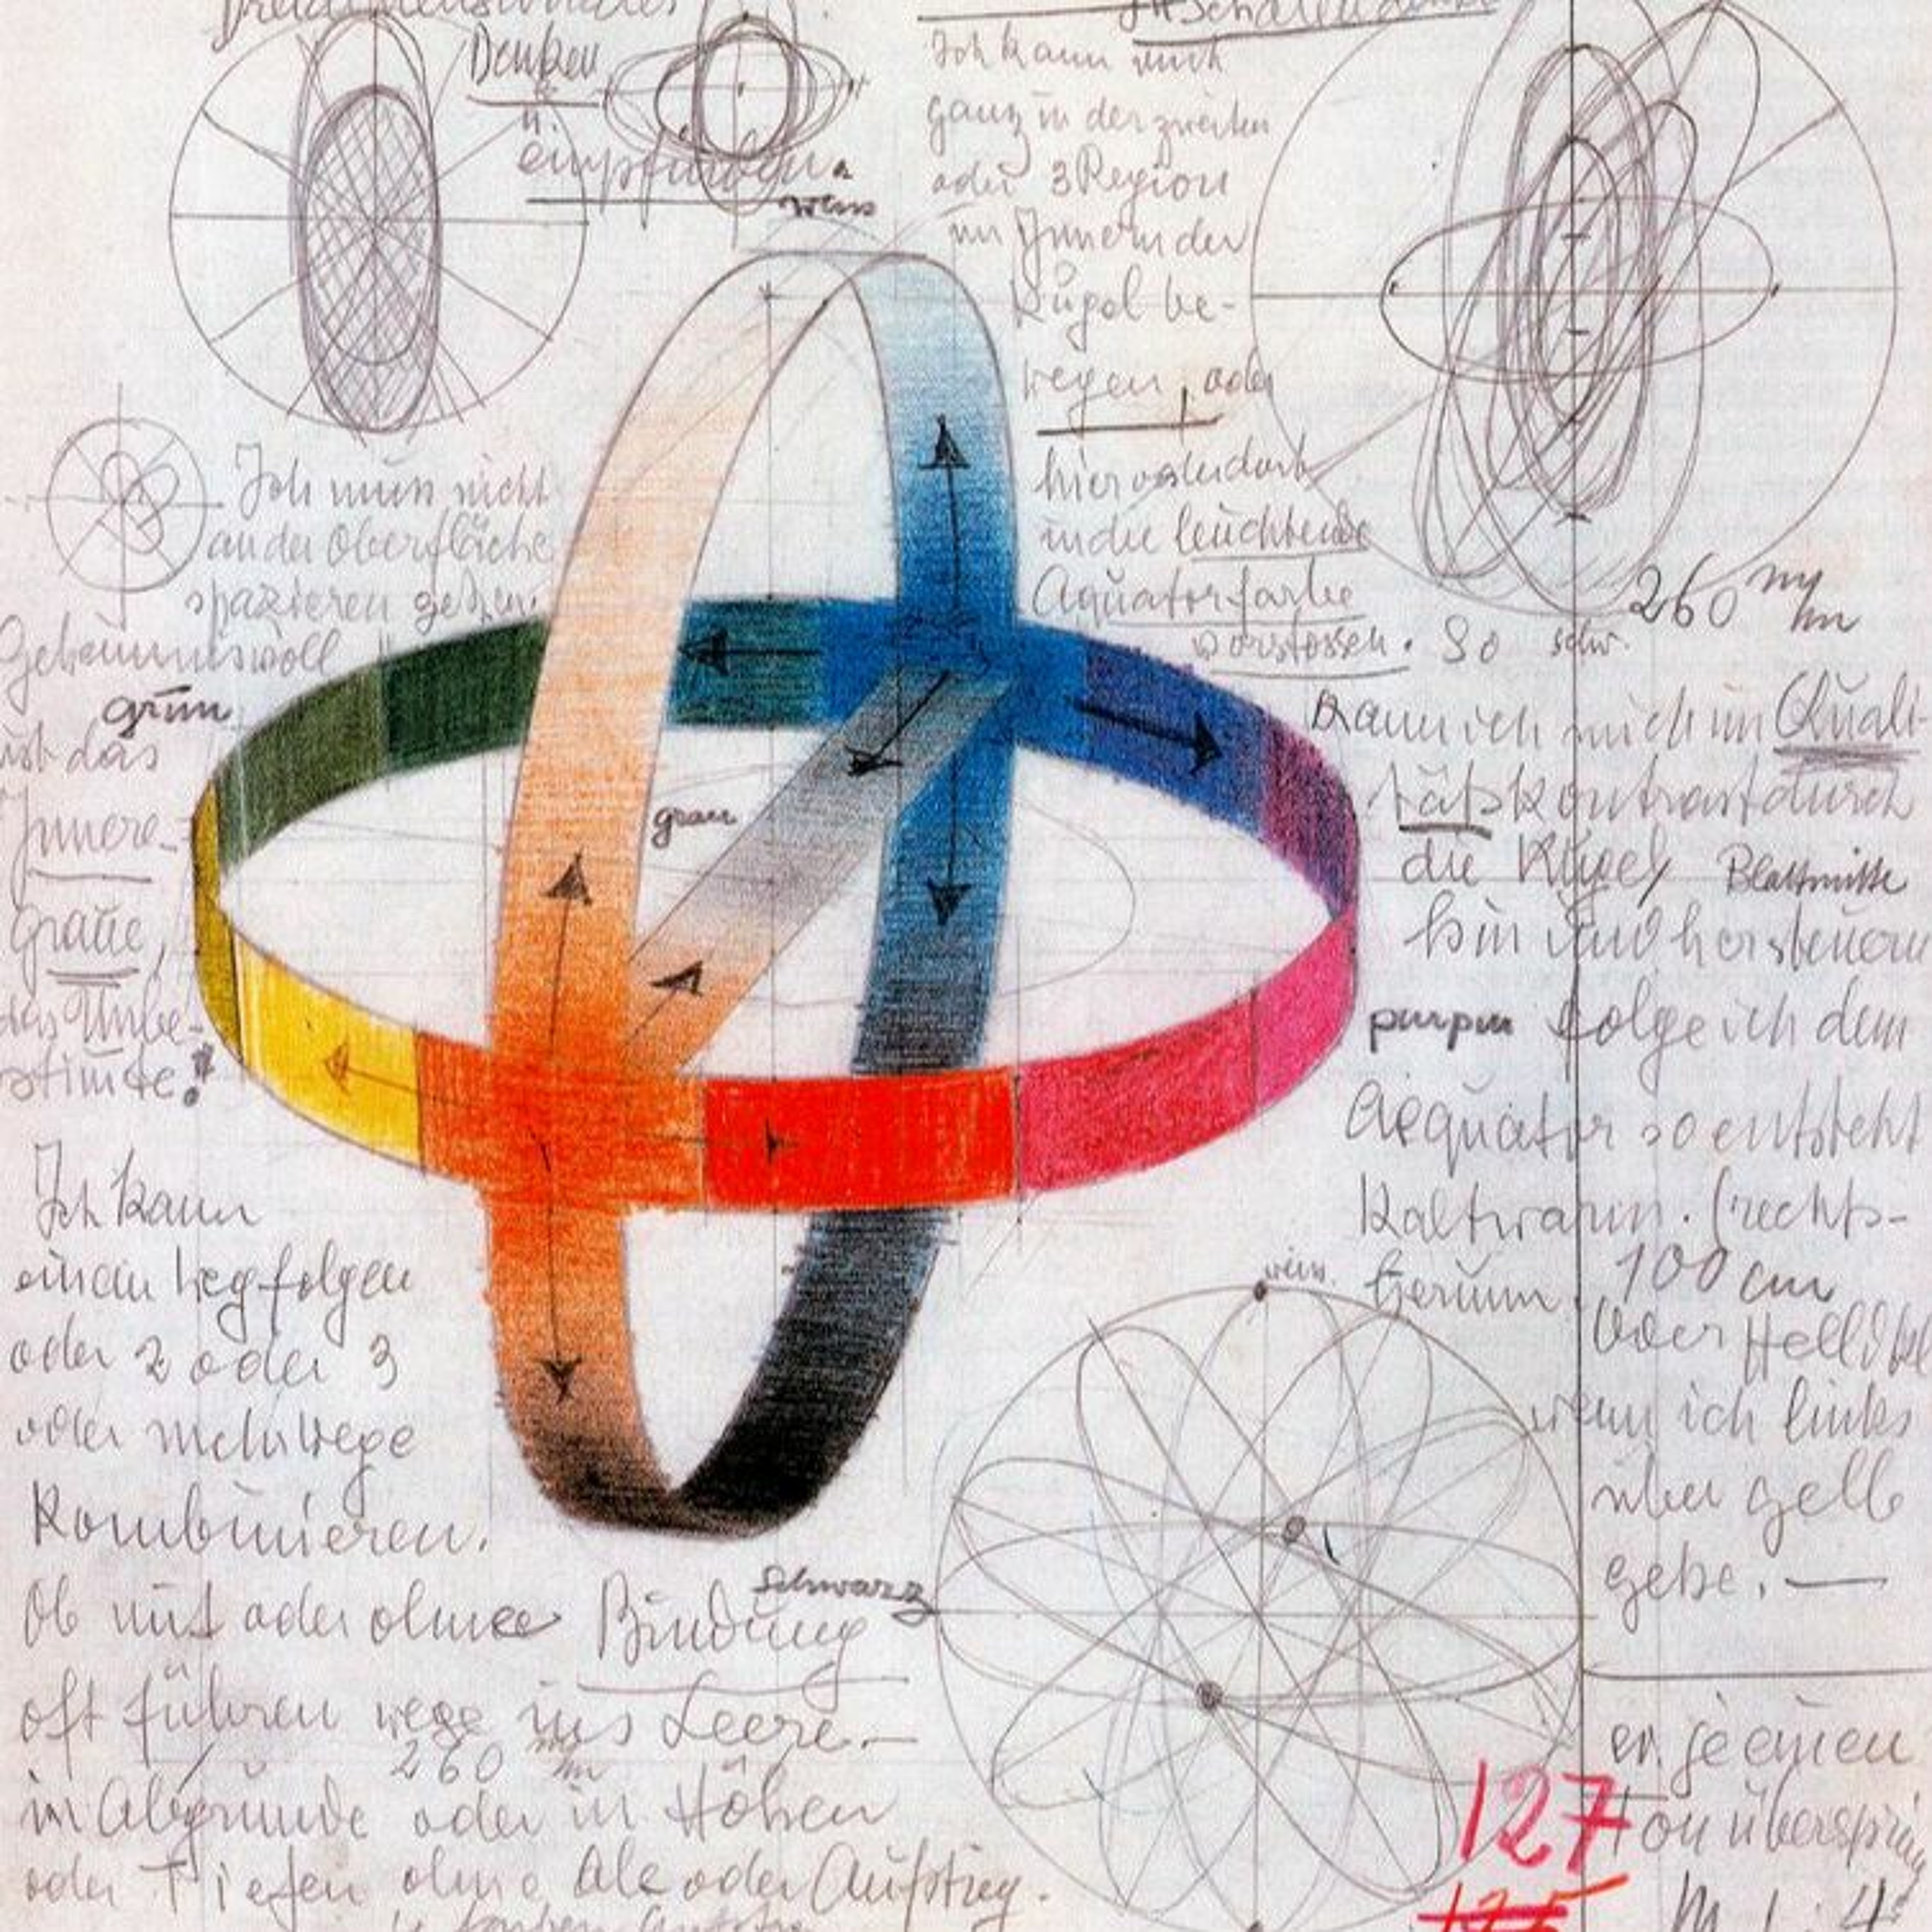 Denken
u.
empfinden.
weiss
Ich kann mich
ganz in der zweiten
oder 3 Region
im Innern der
Kugel be-
wegen, oder
hier oder dort
in die leuchtende
Aquatorfarbe
vorstossen. So
kann ich mich im Quali-
tätskontrast durch
die Kugel
hin und hersteuern
folge ich dem
Aequator so entsteht
Kaltwarm. (rechts-
herum
oder Helld
wenn ich links
über gelb
gehe. —
Ich muss nicht
an der Oberfläche
spazieren gehen.
Geheimnisvoll
ist das
Innere
Graue,
das Unbe-
stimte.
grün
grau
purpur
Blattmitte
260 m/m
100 cm
weiss.
schwarz
Ich kann
einem Weg folgen
oder 2 oder 3
oder mehr Wege
Kombinieren.
Ob mit oder ohne Bindung
oft führen wege ins Leere.—
260 m/m
in Abgründe oder in Höhen
oder Tiefen ohne Ab oder Aufstieg.
er je einen
Ton überspring
127
125